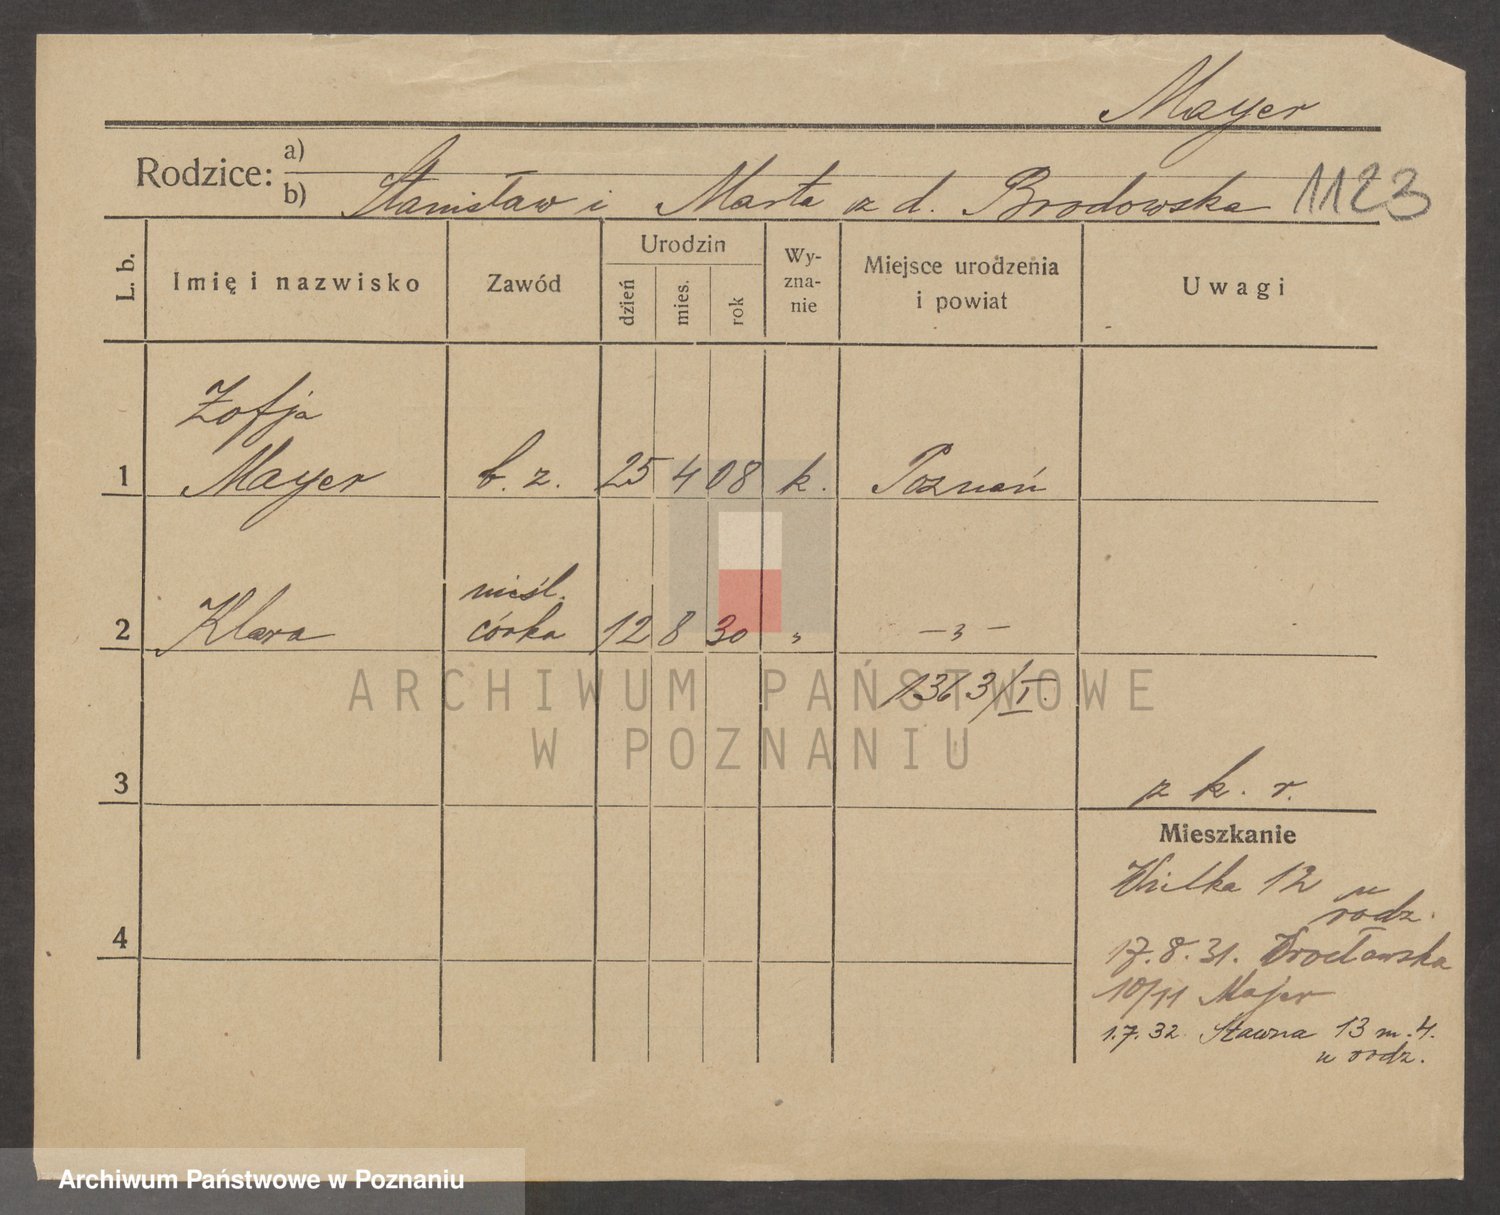 Mayer
Rodzice: a)
b) Stanisław i Marta z d. Brodowska 1123
L. b. Imię i nazwisko Zawód Urodzin dzień mies. rok Wy-zna-nie Miejsce urodzenia i powiat Uwagi
Zofja
1 Mayer b. z. 25 4 08 k. Poznań
nieśl.
2 Klara córka 12 8 30 „ — „ —
1363/I
ARCHIWUM PAŃSTWOWE
W POZNANIU
3 z k. r.
Mieszkanie
Wielka 12 u
rodz.
4 17.8.31. Wrocławska
10/11 Majer
1.7.32. Stawna 13 m. 4.
u rodz.
Archiwum Państwowe w Poznaniu